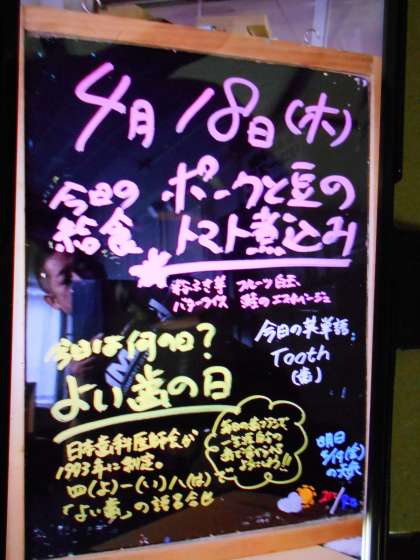 4月18日(木)
今日の給食
ポークと豆の
トマト煮込み
粉ふき芋 フルーツ白玉
バターライス 鮭のエスカベーシュ
今日の英単語
Tooth
(歯)
今日は何の日?
よい歯の日
日本歯科医師会が
1993年に制定。
四(よ)一(い)八(は)で
「よい歯」の語呂合せ
毎日の歯ブラシで
一生涯自分の
明日
の天気